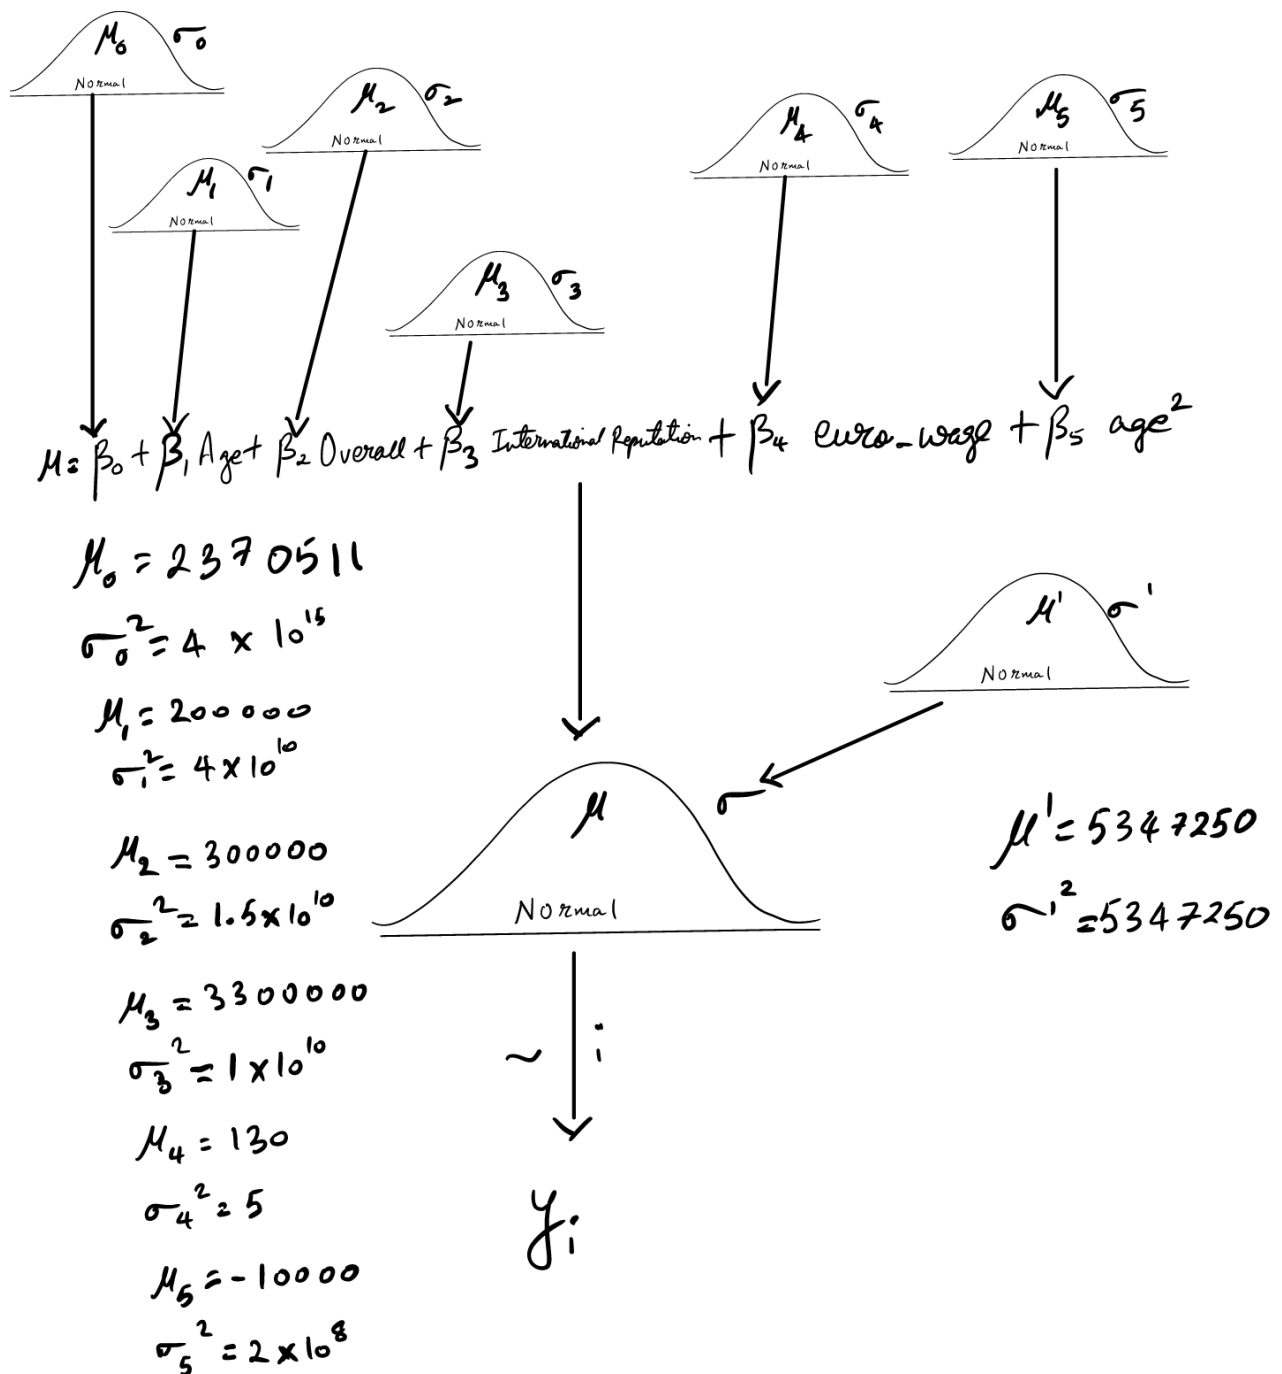 μ₀ σ₀
Normal
μ₁ σ₁
Normal
μ₂ σ₂
Normal
μ₃ σ₃
Normal
μ₄ σ₄
Normal
μ₅ σ₅
Normal
μ = β₀ + β₁ Age + β₂ Overall + β₃ International Reputation + β₄ euro-wage + β₅ age²
μ₀ = 2370511
σ₀² = 4 × 10¹⁵
μ₁ = 200000
σ₁² = 4 × 10¹⁰
μ₂ = 300000
σ₂² = 1.5 × 10¹⁰
μ₃ = 3300000
σ₃² = 1 × 10¹⁰
μ₄ = 130
σ₄² = 5
μ₅ = -10000
σ₅² = 2 × 10⁸
μ' σ'
Normal
μ σ
Normal
μ' = 5347250
σ'² = 5347250
~ i
yᵢ